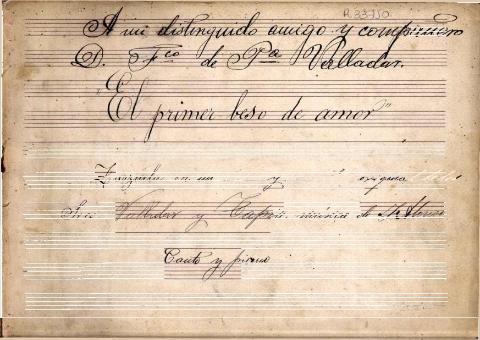 R.33.150
A mi distinguido amigo y compañero
D. Fco de Pa Valladar.
"El primer beso de amor"
Zarzuela en un y
Valladar y música de
Canto y piano